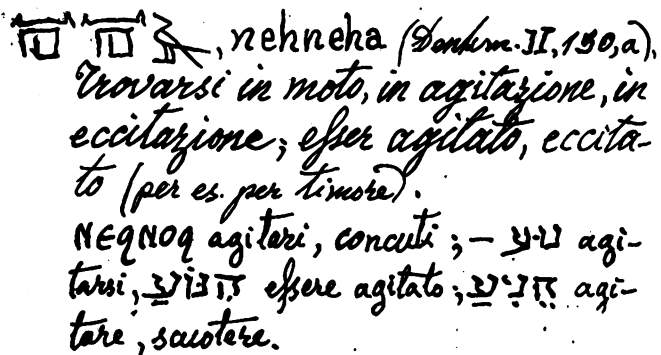 , nehneha (Denkm. II, 150, a),
Trovarsi in moto, in agitazione, in
eccitazione; esser agitato, eccita-
to (per es. per timore).
ⲚⲈϤⲚⲞϤ agitari, concuti; — נוע agi-
tarsi, essere agitato; agi-
tare, scuotere.